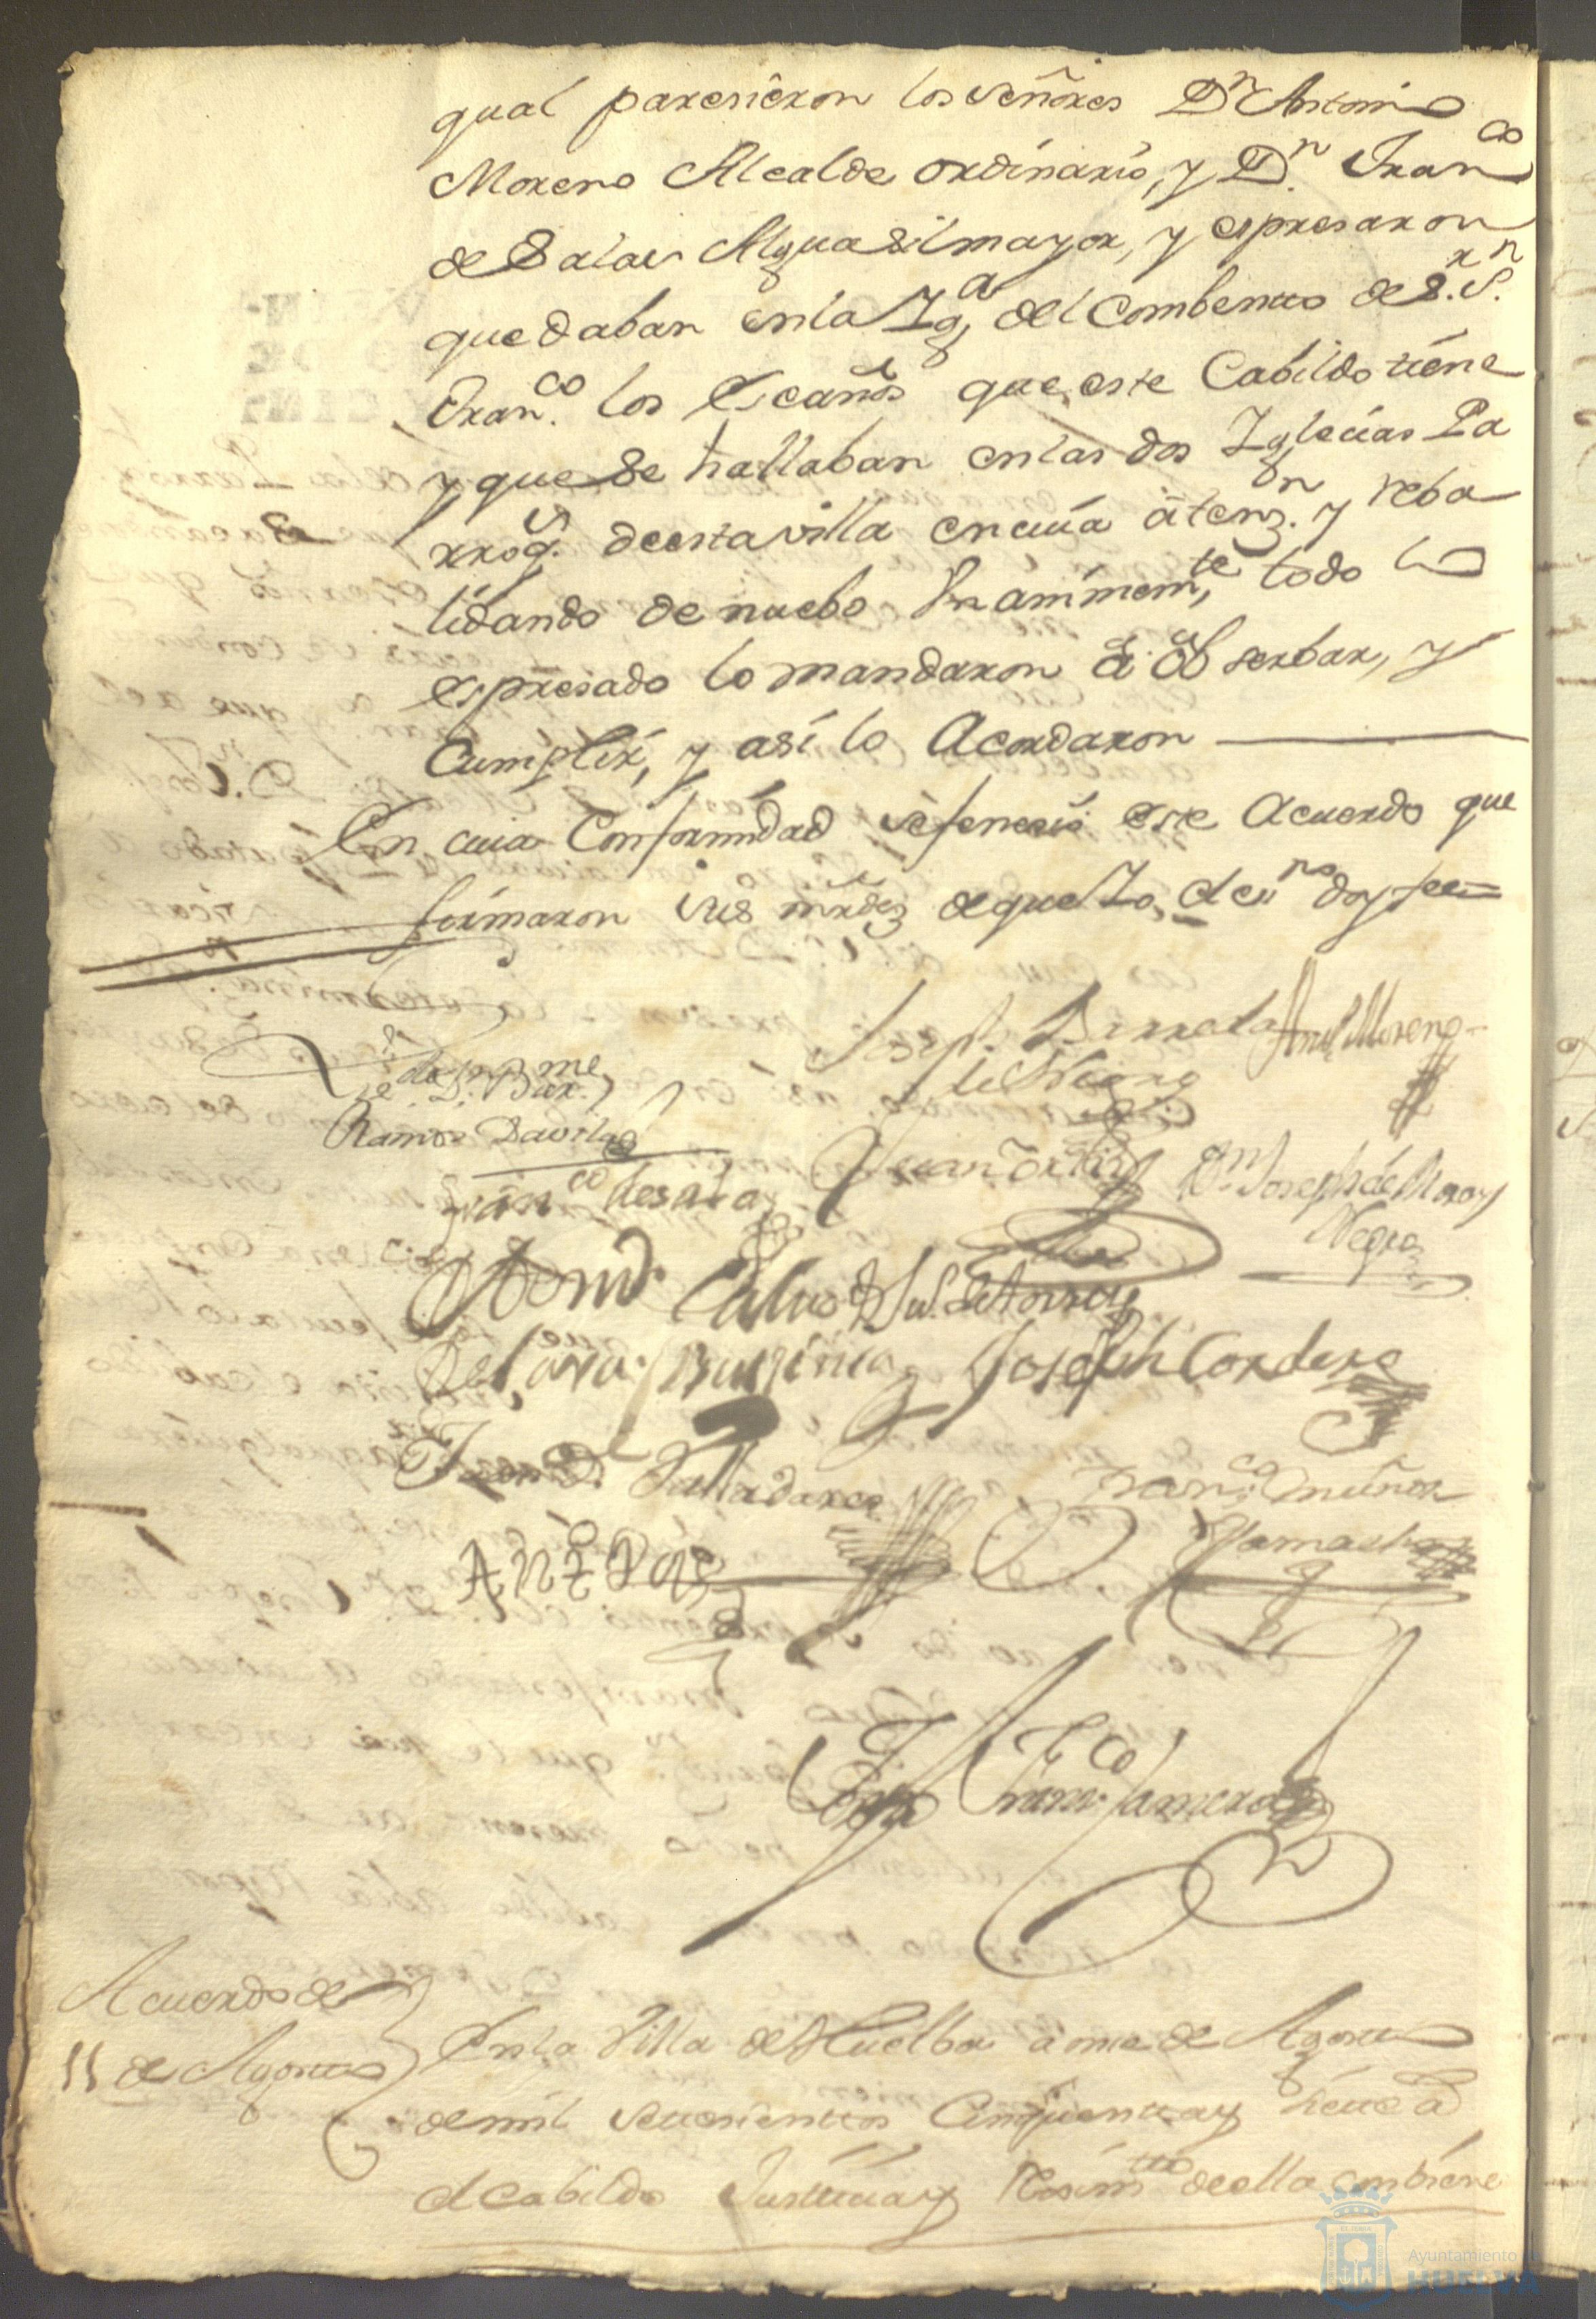 qual paresieron los señores Dn Antonio
Moreno Alcalde ordinario, y Dn. Franco
de Salas Alguasil mayor, y espresaron
quedaban en la Iga, del Combento de Sr. Sn.
Franco. los Escaños que este Cabildo tiene
y que se hallaban en las dos Iglecias Pa
rroqs. de esta villa en cuia atenzn. y reba
lidando de nuebo Unanimemte, todo lo
espresado lo mandaron Observar, y
Cumplir, y asi lo Acordaron
En cuia Conformidad se fenecio este Acuerdo que
firmaron sus mrdez de que Yo, el essno doy fee =
Joseph Barreda Antto Moreno
de
Ramos Davila
Juan Ortiz Dn. Joseph de
Negro
Franco de Sala
Joseph Cordero
Juan Valladares Franco. muñoz
Camacho
ANZ DOS
Franco. Romero
Acuerdo de
11 de Agosto
En la Villa de Huelba a onse de Agosto
de mil setesientos Cinquenta y nueve a
el cabildo Justicia y Resimto de ella combiene
Ayuntamiento de
HUELVA